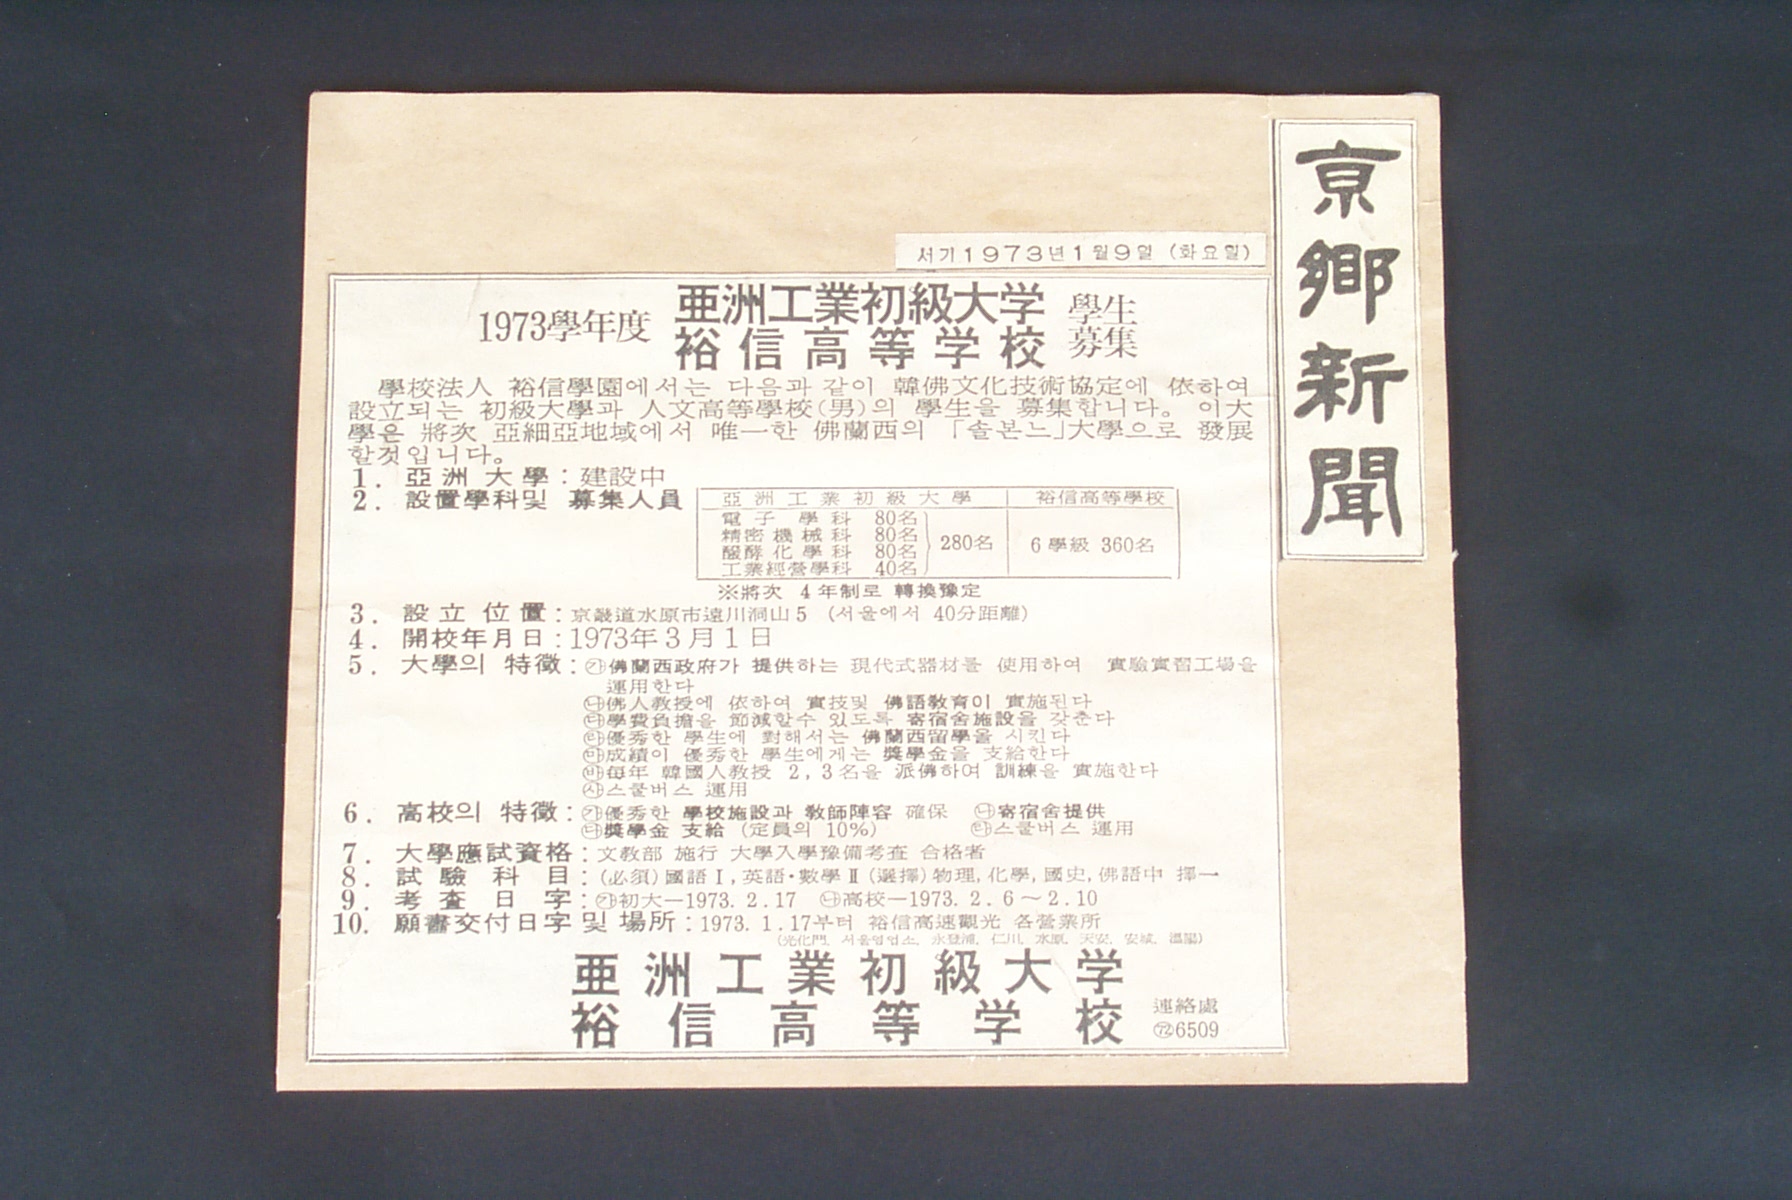 京鄕新聞
서기1973년1월9일 (화요일)
1973學年度 亜洲工業初級大学 學生
裕信高等学校 募集
學校法人 裕信學園에서는 다음과 같이 韓佛文化技術協定에 依하여
設立되는 初級大學과 人文高等學校(男)의 學生을 募集합니다。 이大
學은 將次 亞細亞地域에서 唯一한 佛蘭西의 「솔본느」大學으로 發展
할것입니다。
1. 亞洲大學 : 建設中
2. 設置學科및 募集人員
亞洲工業初級大學 裕信高等學校
電子 學科 80名
精密機械科 80名
醱酵化學科 80名
工業經營學科 40名
280名
6學級 360名
※將次 4年制로 轉換豫定
3. 設立位置 : 京畿道水原市遠川洞山5 (서울에서 40分距離)
4. 開校年月日 : 1973年3月1日
5. 大學의 特徵 : ㉮佛蘭西政府가 提供하는 現代式器材를 使用하여 實驗實習工場을
運用한다
㉯佛人敎授에 依하여 實技및 佛語敎育이 實施된다
㉰學費負擔을 節減할수 있도록 寄宿舍施設을 갖춘다
㉱優秀한 學生에 對해서는 佛蘭西留學을 시킨다
㉲成績이 優秀한 學生에게는 獎學金을 支給한다
㉳每年 韓國人敎授 2, 3名을 派佛하여 訓練을 實施한다
㉴스쿨버스 運用
6. 高校의 特徵 : ㉮優秀한 學校施設과 敎師陣容 確保 ㉯寄宿舍提供
㉰獎學金 支給 (定員의 10%) ㉱스쿨버스 運用
7. 大學應試資格 : 文敎部 施行 大學入學豫備考査 合格者
8. 試驗科目 : (必須)國語Ⅰ, 英語·數學Ⅱ(選擇)物理, 化學, 國史, 佛語中 擇一
9. 考査日字 : ㉮初大―1973. 2. 17 ㉯高校―1973. 2. 6～2. 10
10. 願書交付日字 및 場所 : 1973. 1. 17부터 裕信高速觀光 各營業所
(光化門, 서울영업소, 永登浦, 仁川, 水原, 天安, 安城, 溫陽)
亜洲工業初級大学
裕信高等学校
連絡處
㋲6509